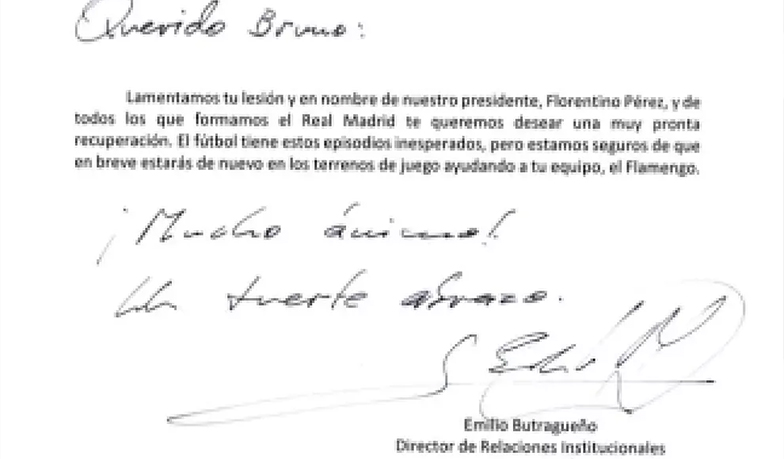 Querido Bruno:
Lamentamos tu lesión y en nombre de nuestro presidente, Florentino Pérez, y de
todos los que formamos el Real Madrid te queremos desear una muy pronta
recuperación. El fútbol tiene estos episodios inesperados, pero estamos seguros de que
en breve estarás de nuevo en los terrenos de juego ayudando a tu equipo, el Flamengo.
¡Mucho ánimo!
Un fuerte abrazo.
Emilio Butragueño
Director de Relaciones Institucionales